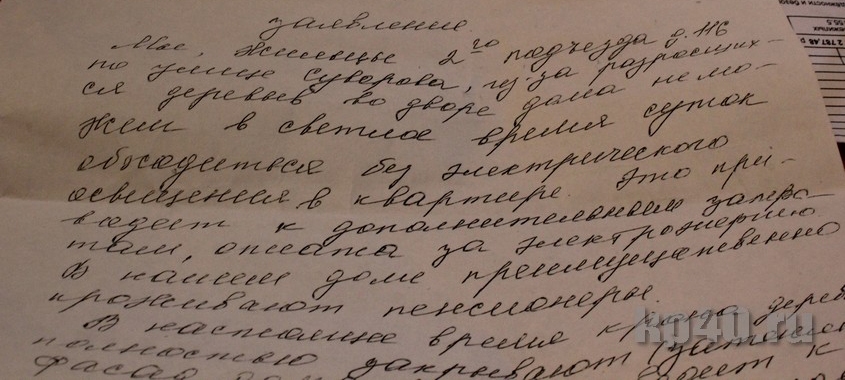 заявление.
Мы, жильцы 2го подъезда д. 116
по улице Суворова, из-за разросших-
ся деревьев во дворе дома не мо-
жем в светлое время суток
обходиться без электрического
освещения в квартире. Это при-
водит к дополнительным затра-
там, оплата за электроэнергию
В нашем доме преимущественно
проживают пенсионеры.
В настоящие время кроны дерев
полностью закрывают
фасад
kp40.ru
2 787,48 р